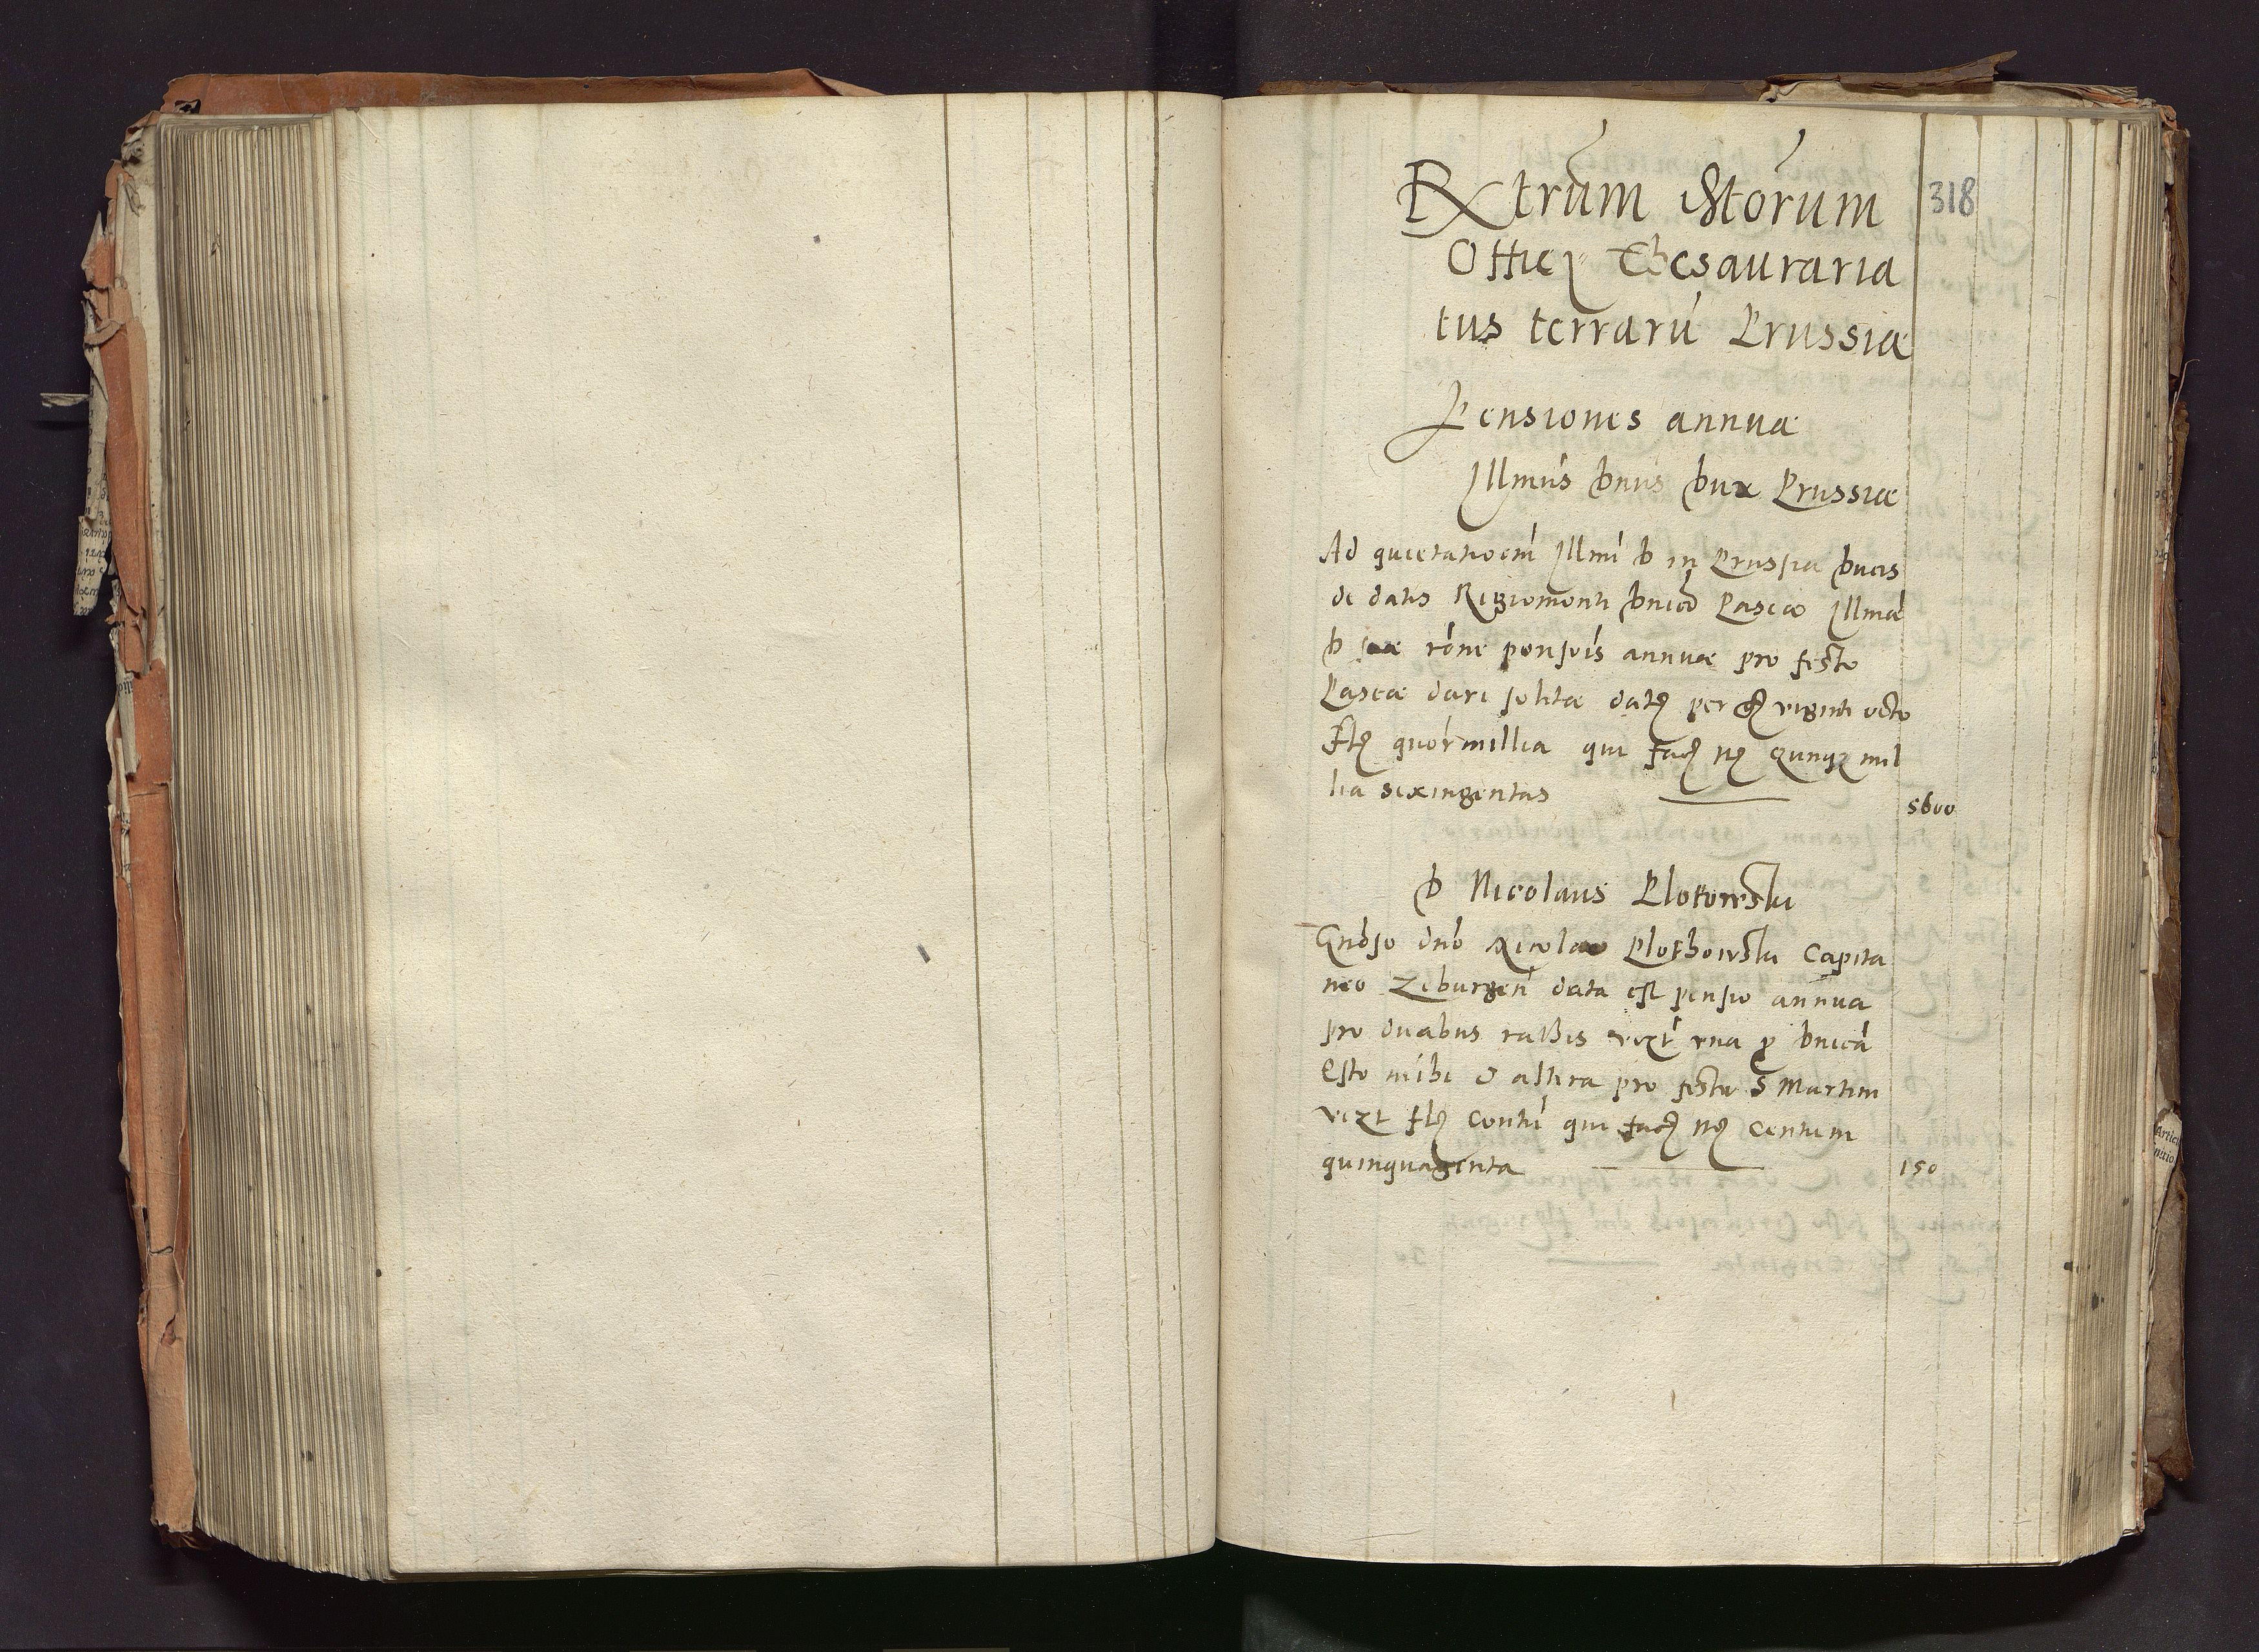 318
Extrum Storum
Officy Thesauraria
tus terrarū Prussiæ
Pensiones annuæ
Illmūs Dnūs Dux Prussiæ
Ad quietatioem̄ Illmī D in Prussia Ducis
de datis Regiomonti Dnico Pascæ Illmæ
D suæ rōne pensiōis annuæ pro festo
Pascæ dari solitæ dat per viginti octo
fl quōr millia qui fac m qunq mil
lia sexingentas
5600
D Nicolaus Plotowski
Gnōso dnō Nicolao Plothowski Capita
neo Zeburgeñ data est pensio annua
pro duabus rathis vizt vna p Dnica
Esto mihi & altera pro festo S Martini
vizt fl Centū qui fac m centum
quinquagenta
150